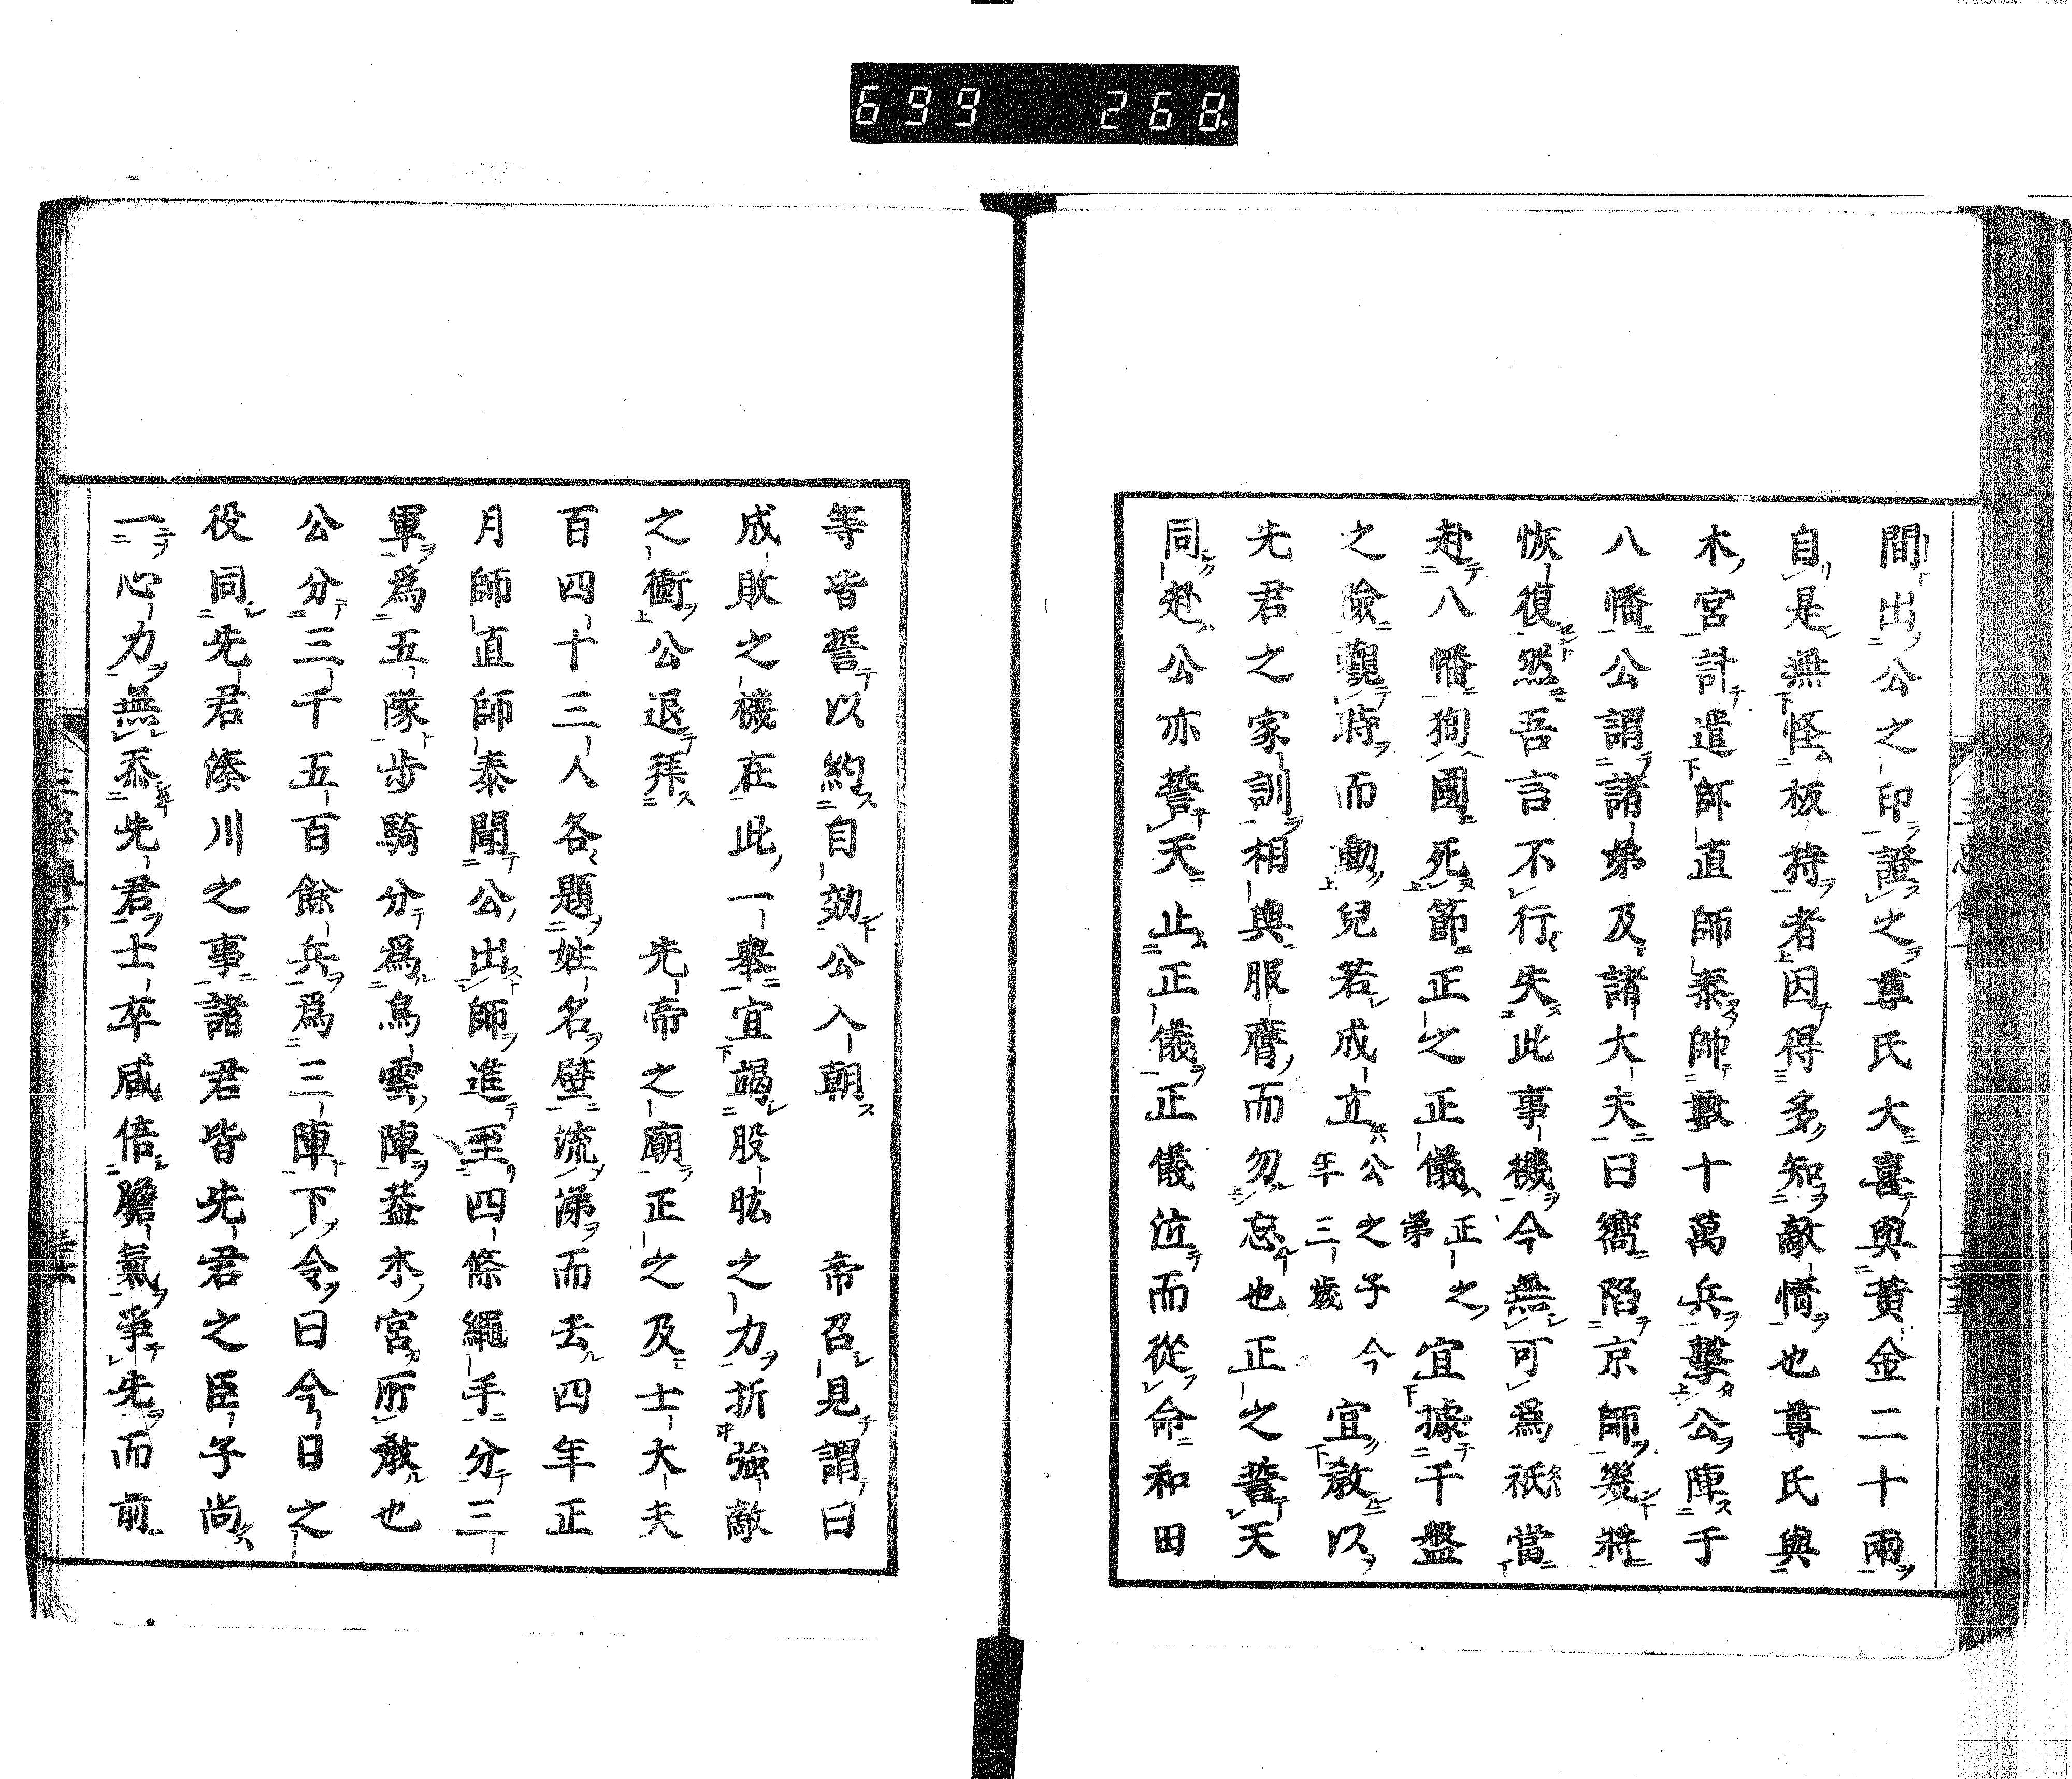 699 268
間出公之印證之尊氏大喜與黃金二十兩
自是無怪板持者因得多知敵情也尊氏與
木宮計遣師直師泰帥數十萬兵擊公陣于
八幡公謂諸弟及諸大夫曰嚮陷京師幾將
恢復然吾言不行失此事機今無可爲祇當
赴八幡狥國死節正之正儀正之弟宜據千盤
之險觀時而動兒若成立公之子今年三歲宜教以
先君之家訓相與服膺而勿忘也正之誓天
同赴公亦誓天止正儀正儀泣而從命和田
等皆誓以約自効公入朝 帝召見謂曰
成敗之機在此一舉宜竭股肱之力折強敵
之衝公退拜 先帝之廟正之及士大夫
百四十三人各題姓名壁流涕而去四年正
月師直師泰聞公出師進至四條繩手分三
軍爲五隊步騎分爲鳥雲陣葢木宮所教也
公分三千五百餘兵爲三陣下令曰今日之
役同先君湊川之事諸君皆先君之臣子尚
一心力無忝先君士卒咸倍膽氣爭先而前